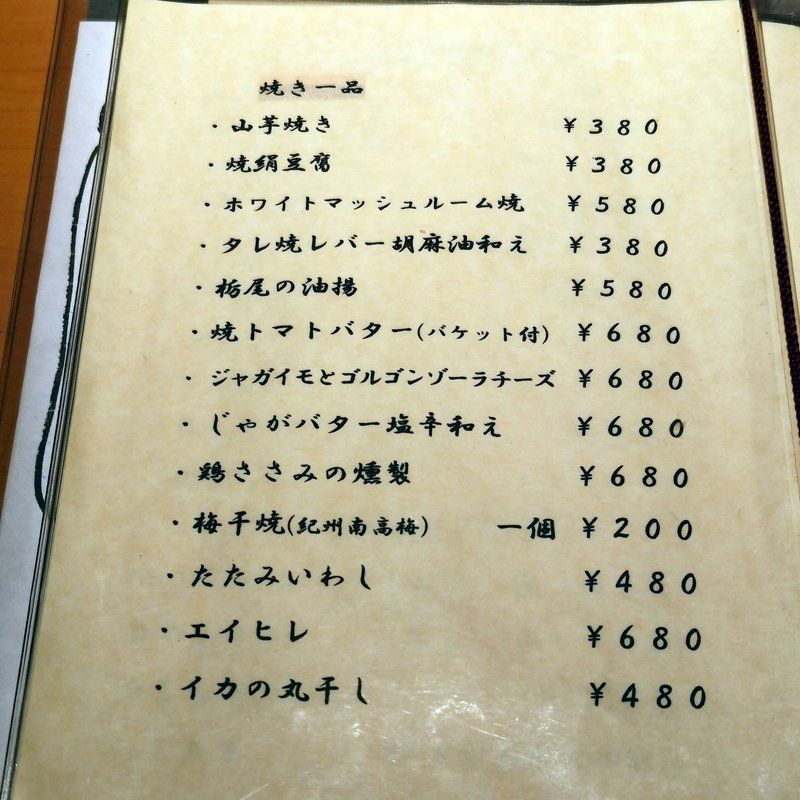 焼き一品
・山芋焼き ￥３８０
・焼絹豆腐 ￥３８０
・ホワイトマッシュルーム焼 ￥５８０
・タレ焼レバー胡麻油和え ￥３８０
・栃尾の油揚 ￥５８０
・焼トマトバター(バケット付) ￥６８０
・ジャガイモとゴルゴンゾーラチーズ ￥６８０
・じゃがバター塩辛和え ￥６８０
・鶏ささみの燻製 ￥６８０
・梅干焼(紀州南高梅) 一個 ￥２００
・たたみいわし ￥４８０
・エイヒレ ￥６８０
・イカの丸干し ￥４８０